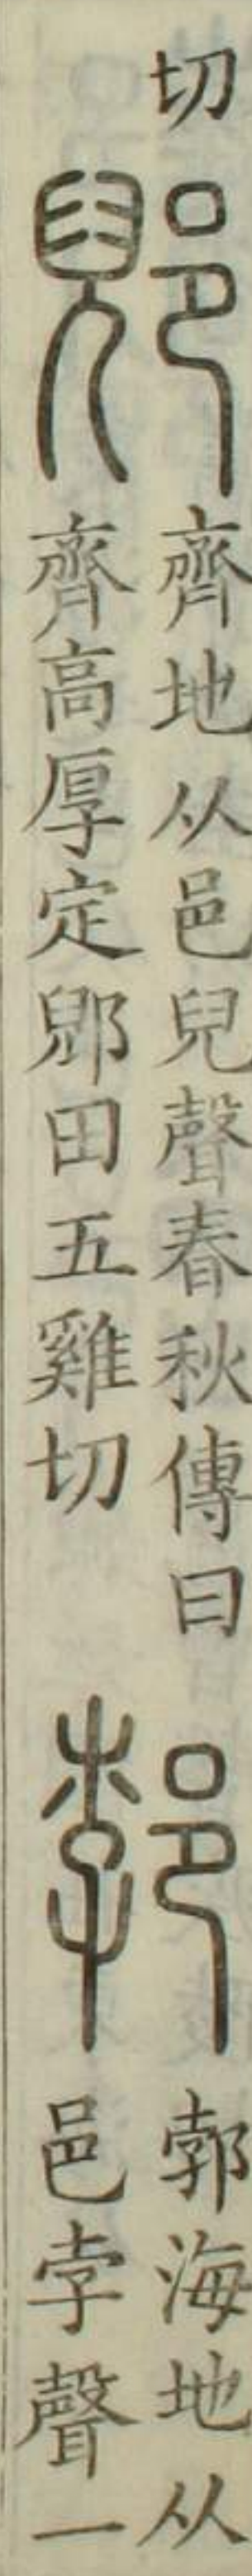 切
郳
齊地从邑兒聲春秋傳曰
齊高厚定郳田五雞切
郣
郣海地从
邑孛聲一